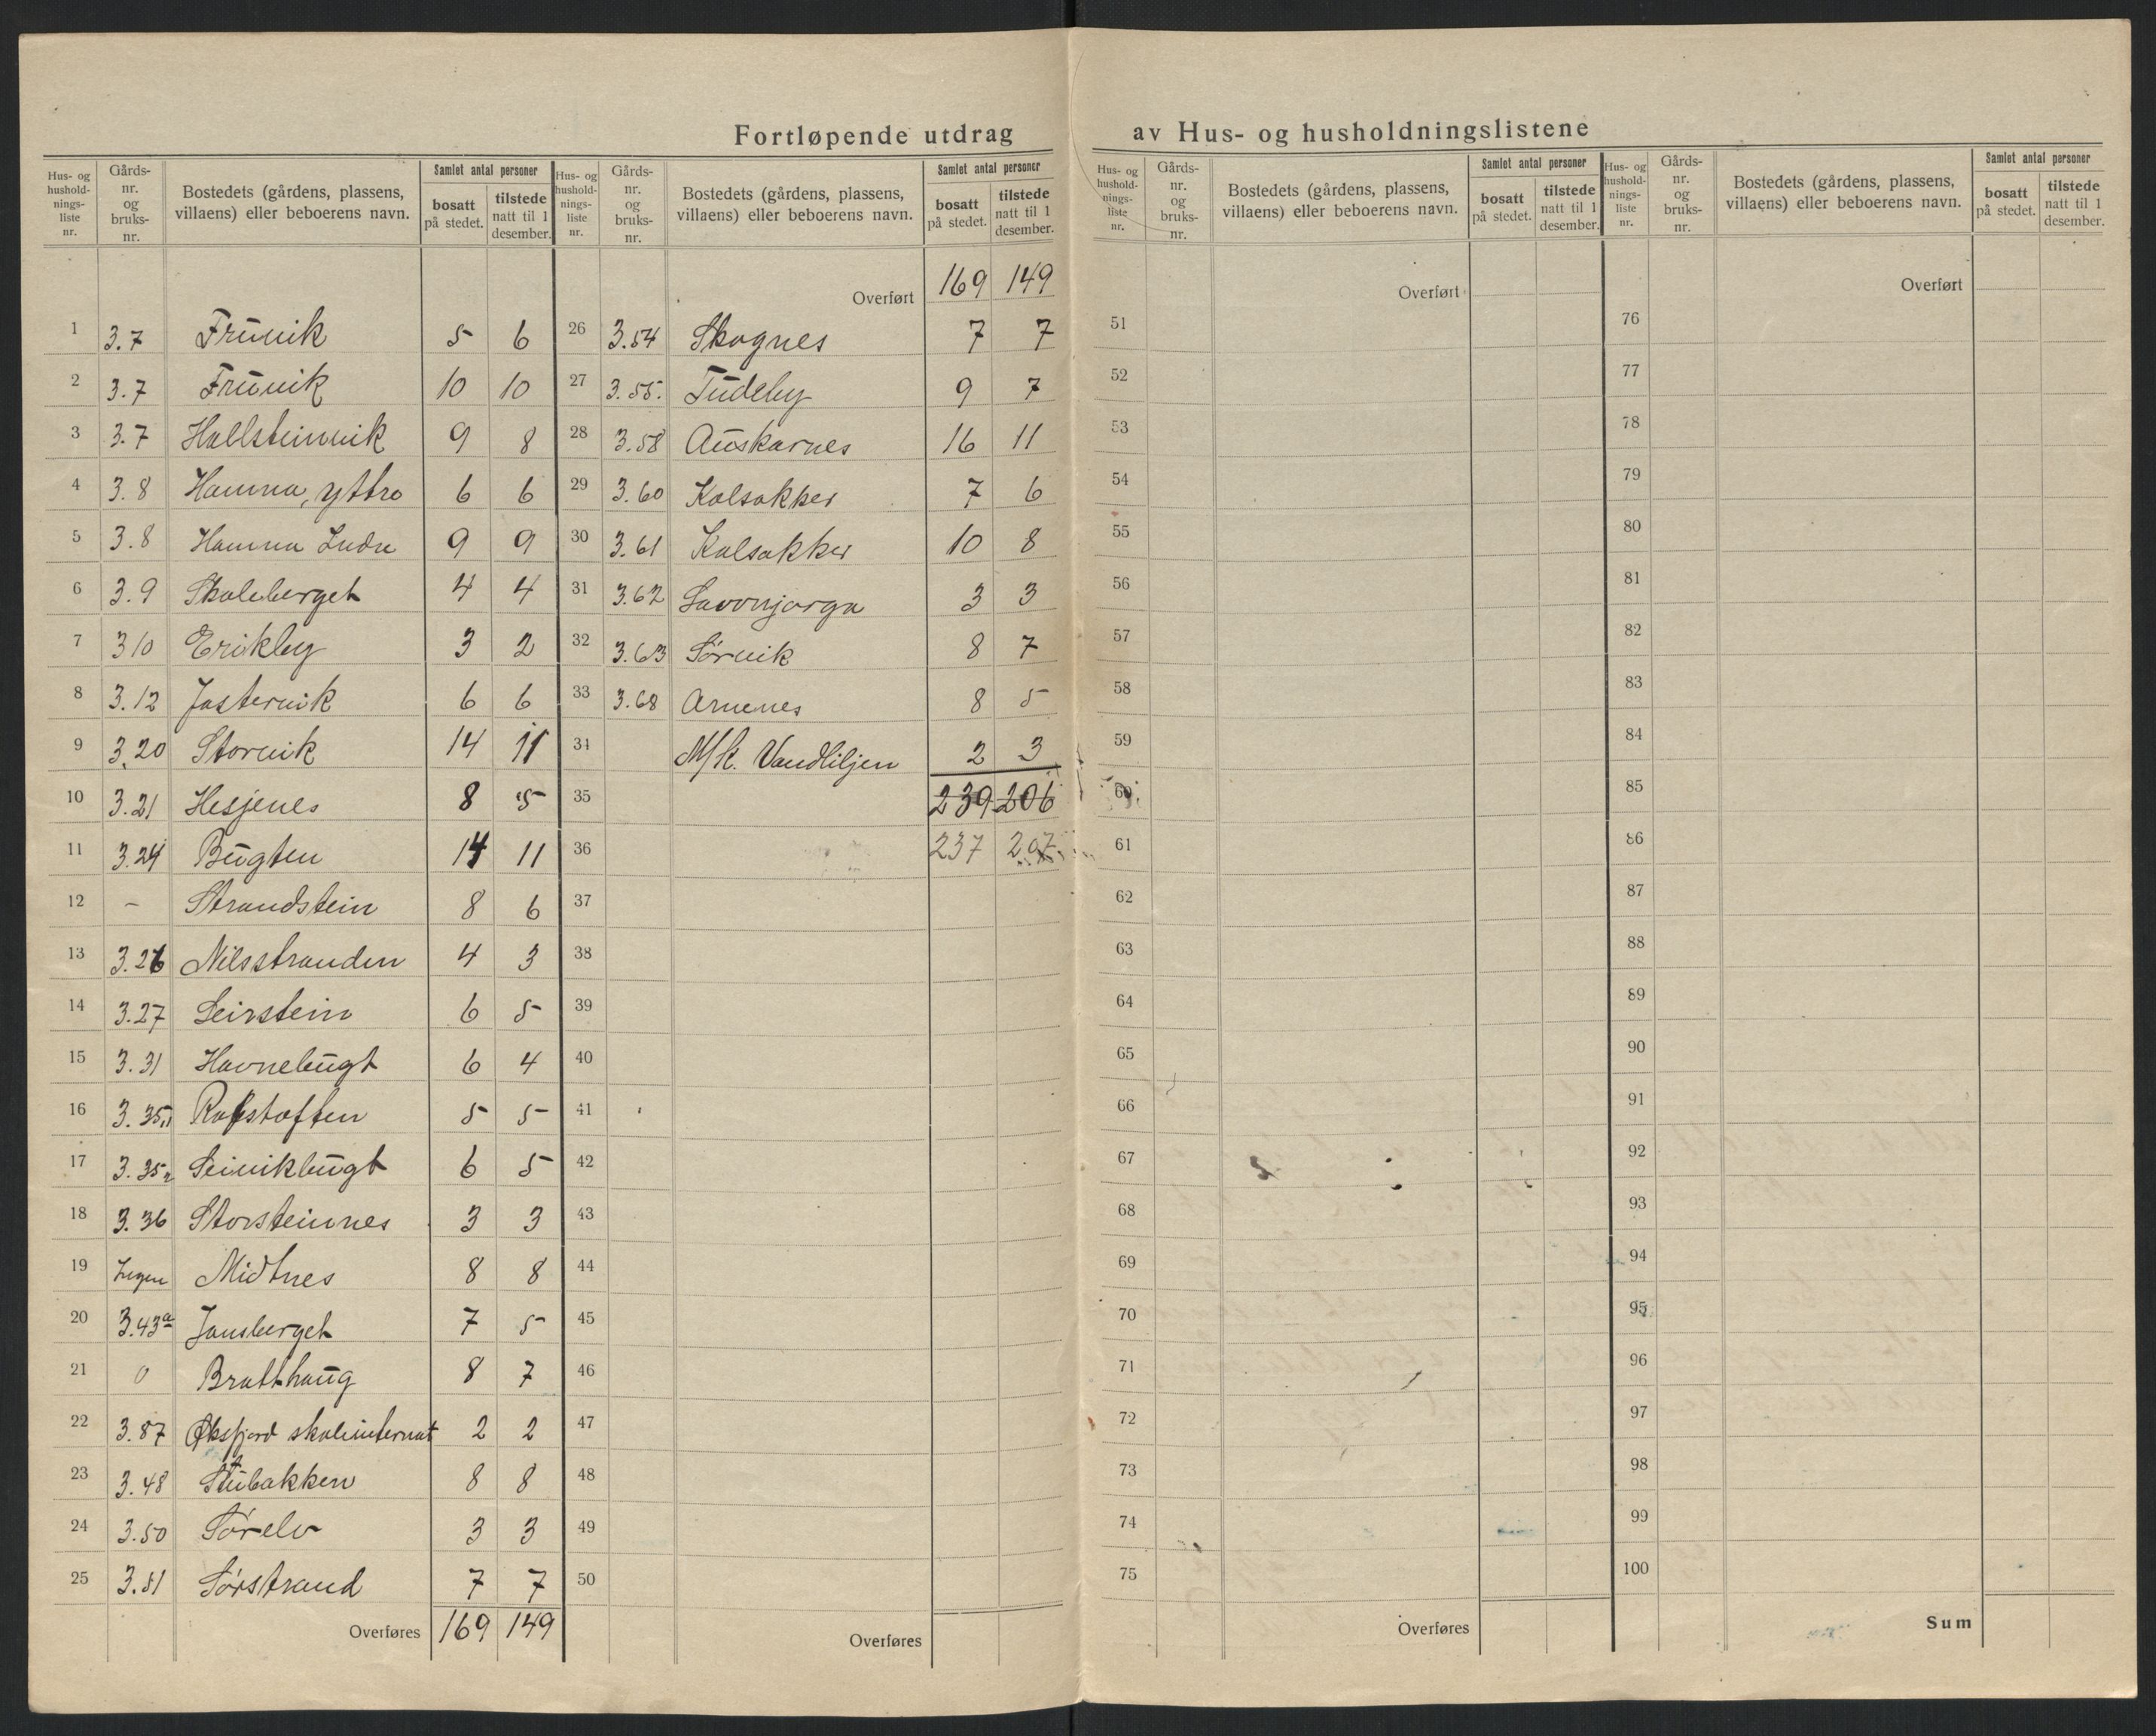 Fortløpende utdrag av Hus- og husholdningslistene
Hus- og hushold- nings- liste nr. | Gårds- nr. og bruks- nr. | Bostedets (gårdens, plassens, villaens) eller beboerens navn. | Samlet antal personer bosatt på stedet. | tilstede natt til 1 desember.
1 3.7 Fruvik 5 6
2 3.7 Fruvik 10 10
3 3.7 Hallsteinvik 9 8
4 3.8 Hamna, yttre 6 6
5 3.8 Hamna Indre 9 9
6 3.9 Skoleberget 4 4
7 3 10 Erikby 3 2
8 3.12 Jastervik 6 6
9 3.20 Storvik 14 11
10 3.21 Hesjenes 8 5
11 3.24 Bugten 14 11
12 – Strandstein 8 6
13 3.26 Nilsstranden 4 3
14 3.27 Leirstein 6 5
15 3.31 Havnebugt 6 4
16 3.35,1 Rafstoften 5 5
17 3.35,2 Seivikbugt 6 5
18 3.36 Storsteinnes 3 3
19 Ingen Midtnes 8 8
20 3.43a Jansberget 7 5
21 0 Bratthaug 8 7
22 3.87 Øksfjord skoleinternat 2 2
23 3.48 Stubakken 8 8
24 3.50 Sørelv 3 3
25 3.51 Sørstrand 7 7
Overføres 169 149
Hus- og hushold- nings- liste nr. | Gårds- nr. og bruks- nr. | Bostedets (gårdens, plassens, villaens) eller beboerens navn. | Samlet antal personer bosatt på stedet. | tilstede natt til 1 desember.
Overført 169 149
26 3.54 Skognes 7 7
27 3.55. Tudeby 9 7
28 3.58 Auskarnes 16 11
29 3.60 Kalsakker 7 6
30 3.61 Kalsakker 10 8
31 3.62 Savonjarga 3 3
32 3.63 Sørvik 8 7
33 3.68 Arnenes 8 5
34 M/k. Vandliljen 2 3
35 239 206
36 237 207
37
38
39
40
41
42
43
44
45
46
47
48
49
50
Overføres
Hus- og hushold- nings- liste nr. | Gårds- nr. og bruks- nr. | Bostedets (gårdens, plassens, villaens) eller beboerens navn. | Samlet antal personer bosatt på stedet. | tilstede natt til 1 desember.
Overført
51
52
53
54
55
56
57
58
59
60
61
62
63
64
65
66
67
68
69
70
71
72
73
74
75
Overføres
Hus- og hushold- nings- liste nr. | Gårds- nr. og bruks- nr. | Bostedets (gårdens, plassens, villaens) eller beboerens navn. | Samlet antal personer bosatt på stedet. | tilstede natt til 1 desember.
Overført
76
77
78
79
80
81
82
83
84
85
86
87
88
89
90
91
92
93
94
95
96
97
98
99
100
Sum